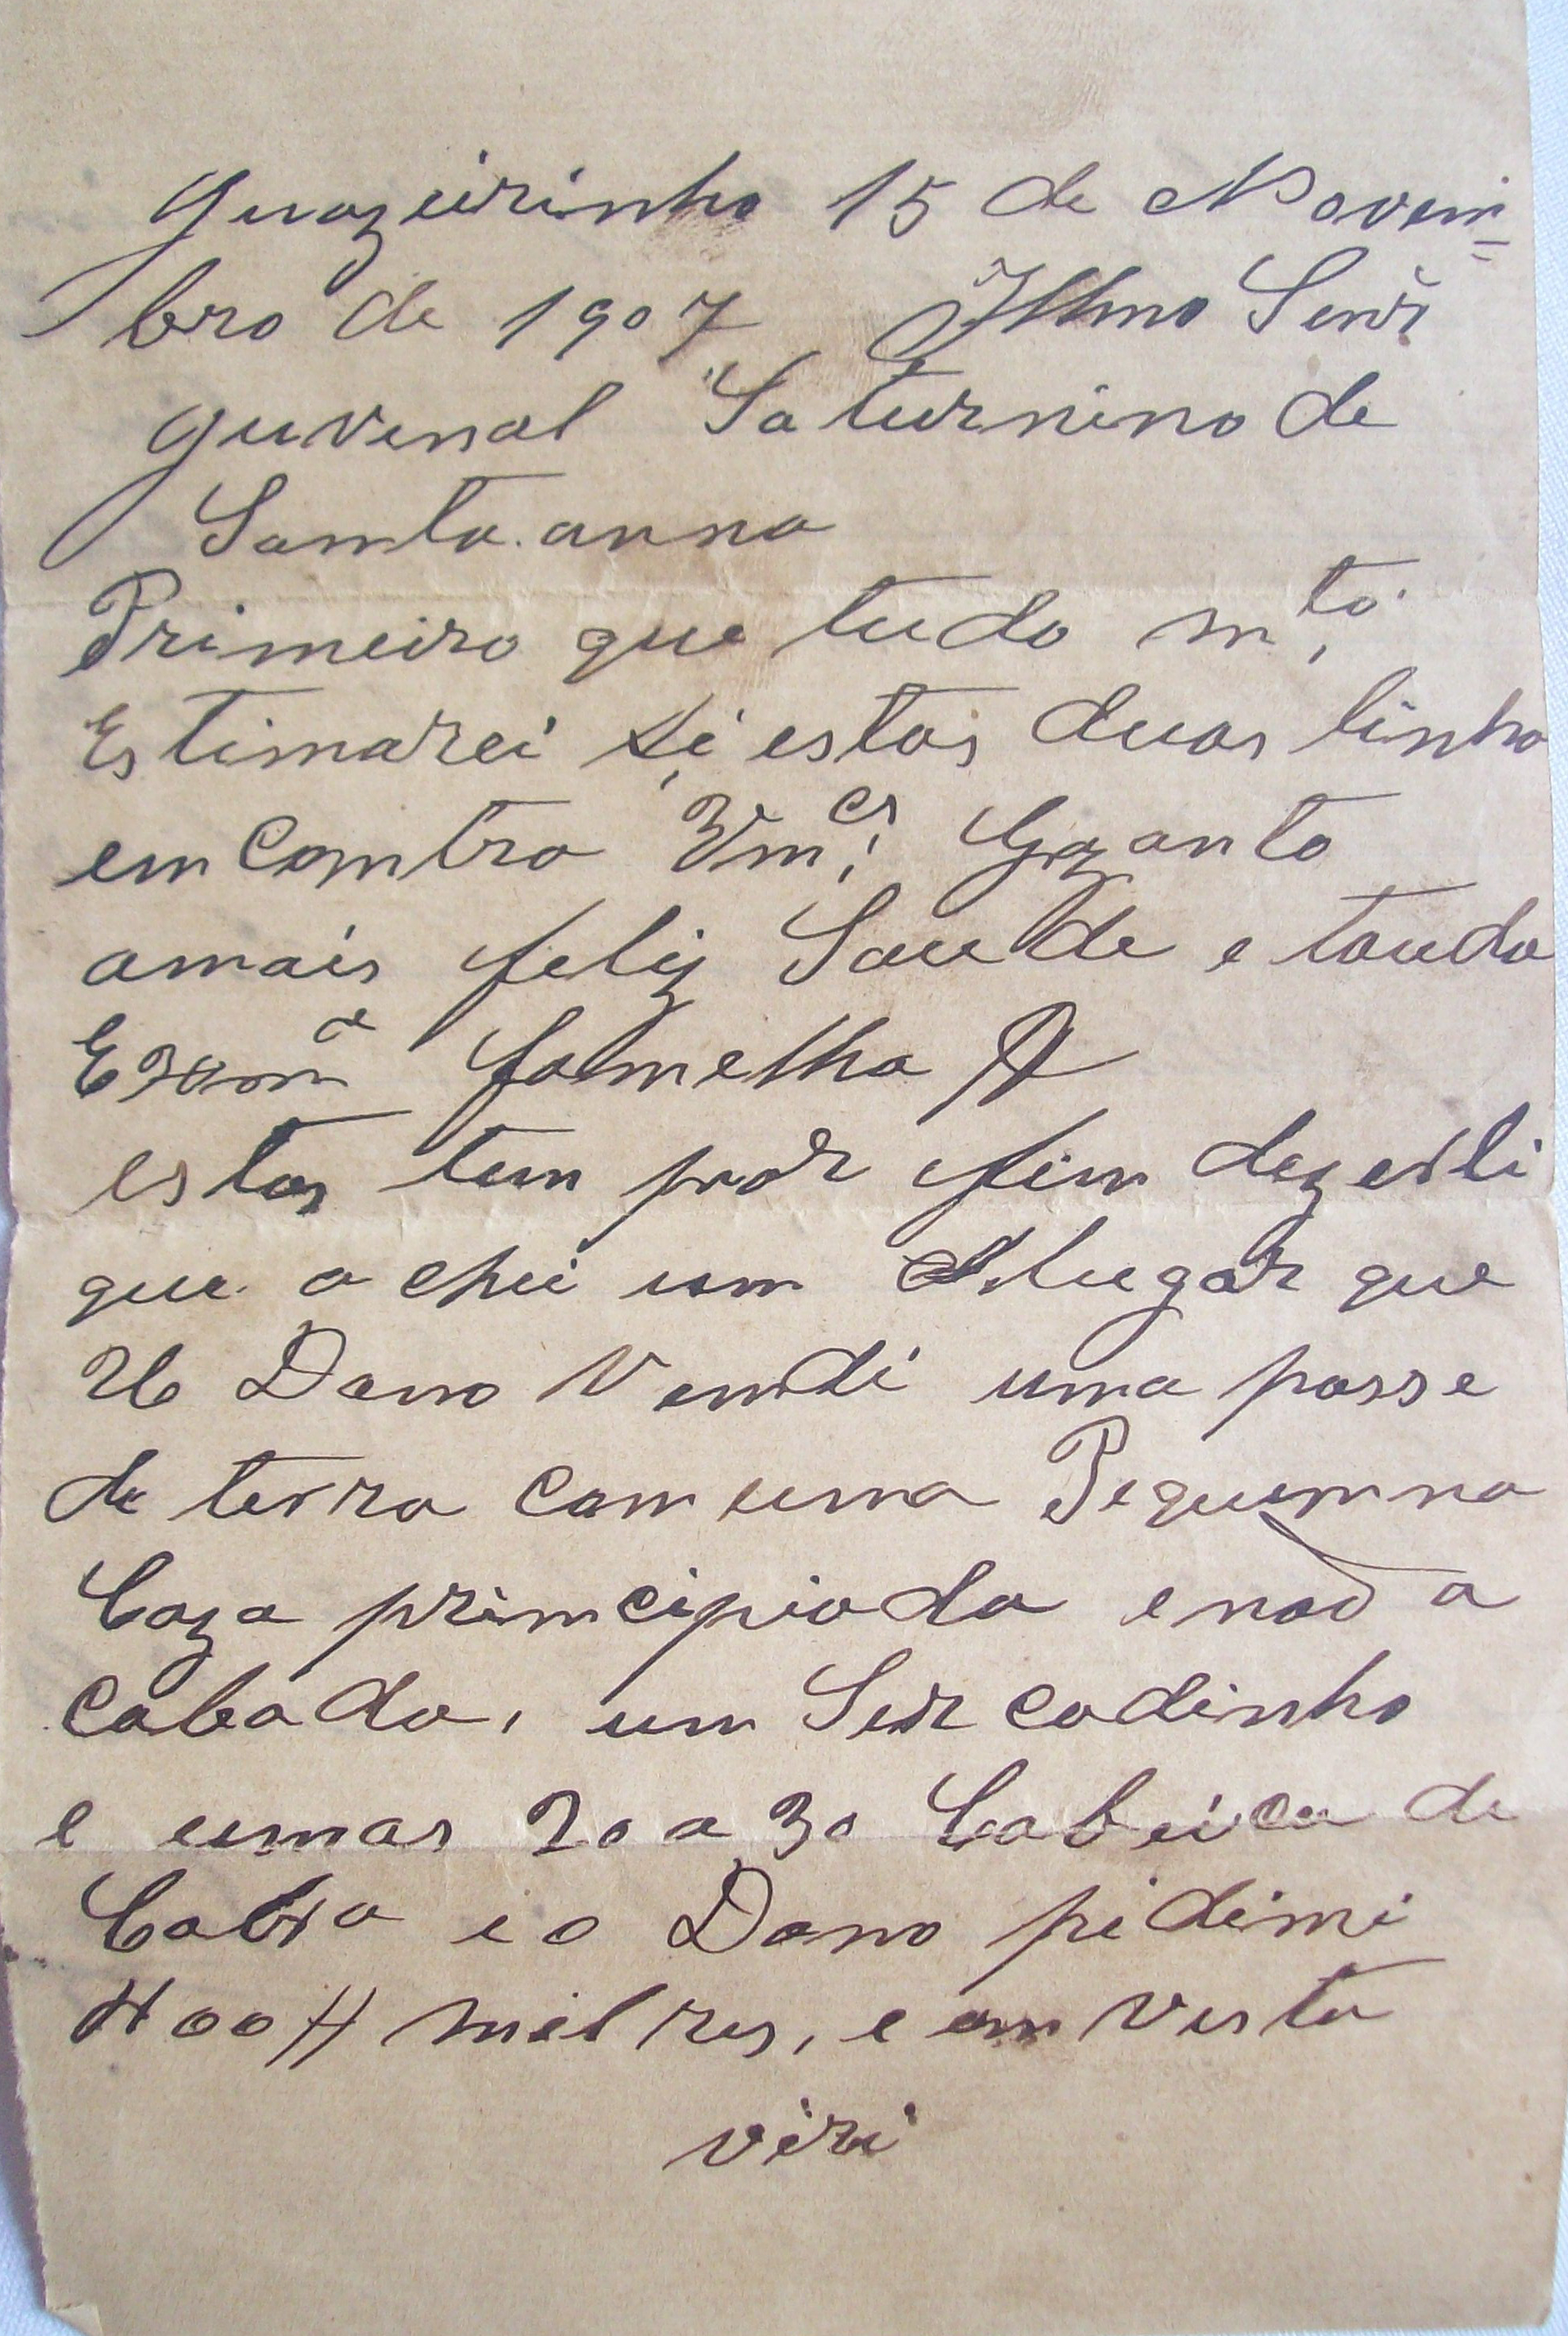 Juazeirinho 15 de Novem=
bro de 1907 Illmo Senr
Juvenal Saturnino de
Santa.anna
Primeiro que tudo m.to
Estimarei si estas duas linha
emcomtra Vm.ces Gozanto
amais feliz Saude e touda
Exmª famelha
estas tem por fim dezerlli
que achei um lugar que
U Dono Vendi uma posse
de terra com uma Pequemna
Caza primcipiada e naõ a
cabada, um Sercadinho
e umas 20 a 30 Cabeica de
Cabra e o Dono pidimi
400# mil res, e em vista
viri